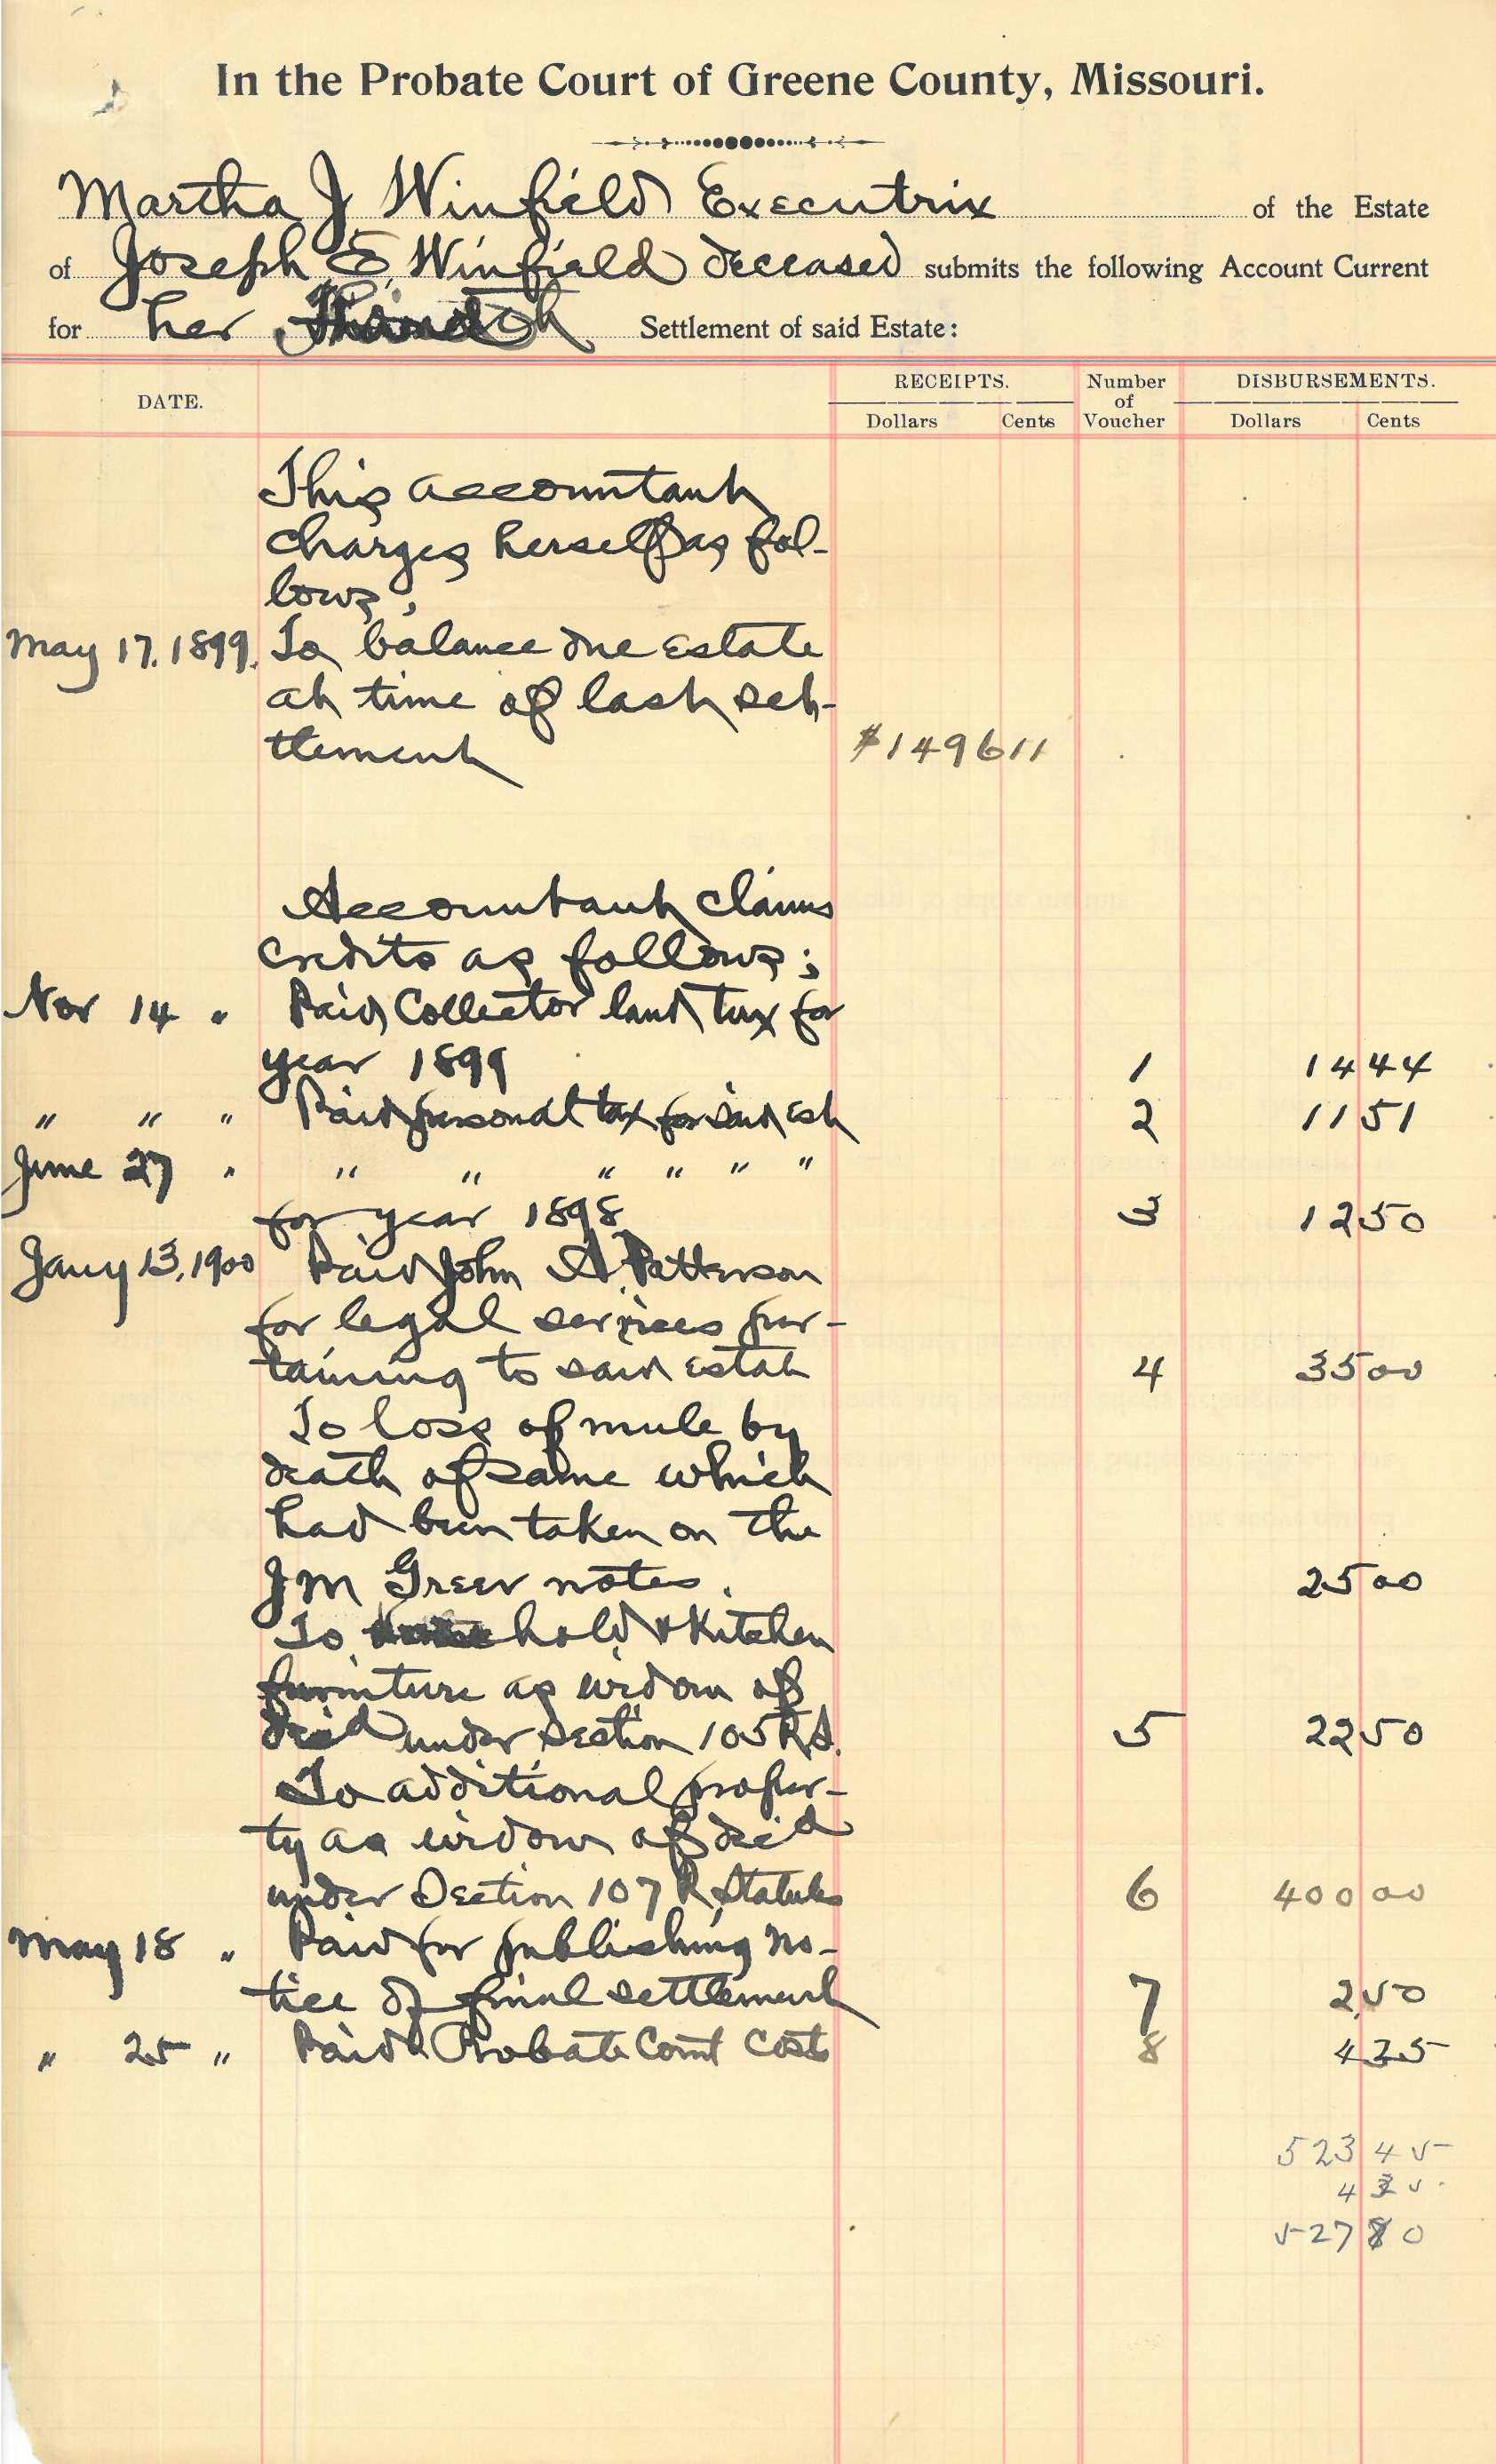 In the Probate Court of Greene County, Missouri.
Martha J Winfield Executrix of the Estate
of Joseph E, Winfield deceased submits the following Account Current
for her Settlement of said Estate:
DATE. RECEIPTS. Number of Voucher DISBURSEMENTS.
Dollars Cents Dollars Cents
This accountant
charges herself as fol-
lows;
May 17. 1899. To balance due estate
at time of last set-
tlement $1496 11
Accountant claims
credits as follows;
Nov 14 " Paid Collector land tax for
year 1899 1 14 44
" " " Paid personal tax for said est 2 11 51
June 27 " " " " " " "
for year 1898 3 12 50
Jany 13, 1900 Paid John A. Patterson
for legal services per-
taining to said estate 4 35 00
To loss of mule by
death of same which
had been taken on the
J M Greer notes. 25 00
To household & Kitchen
furniture as widow of
dec'd under section 105 R.S. 5 22 50
To additional proper-
ty as widow of dec'd
under Section 107 R. Statutes 6 400 00
May 18 " Paid for publishing no-
tice of final settlement 7 2,50
" 25 " Paid Probate Court Costs 8 4 35
523 45
4 35
527 80